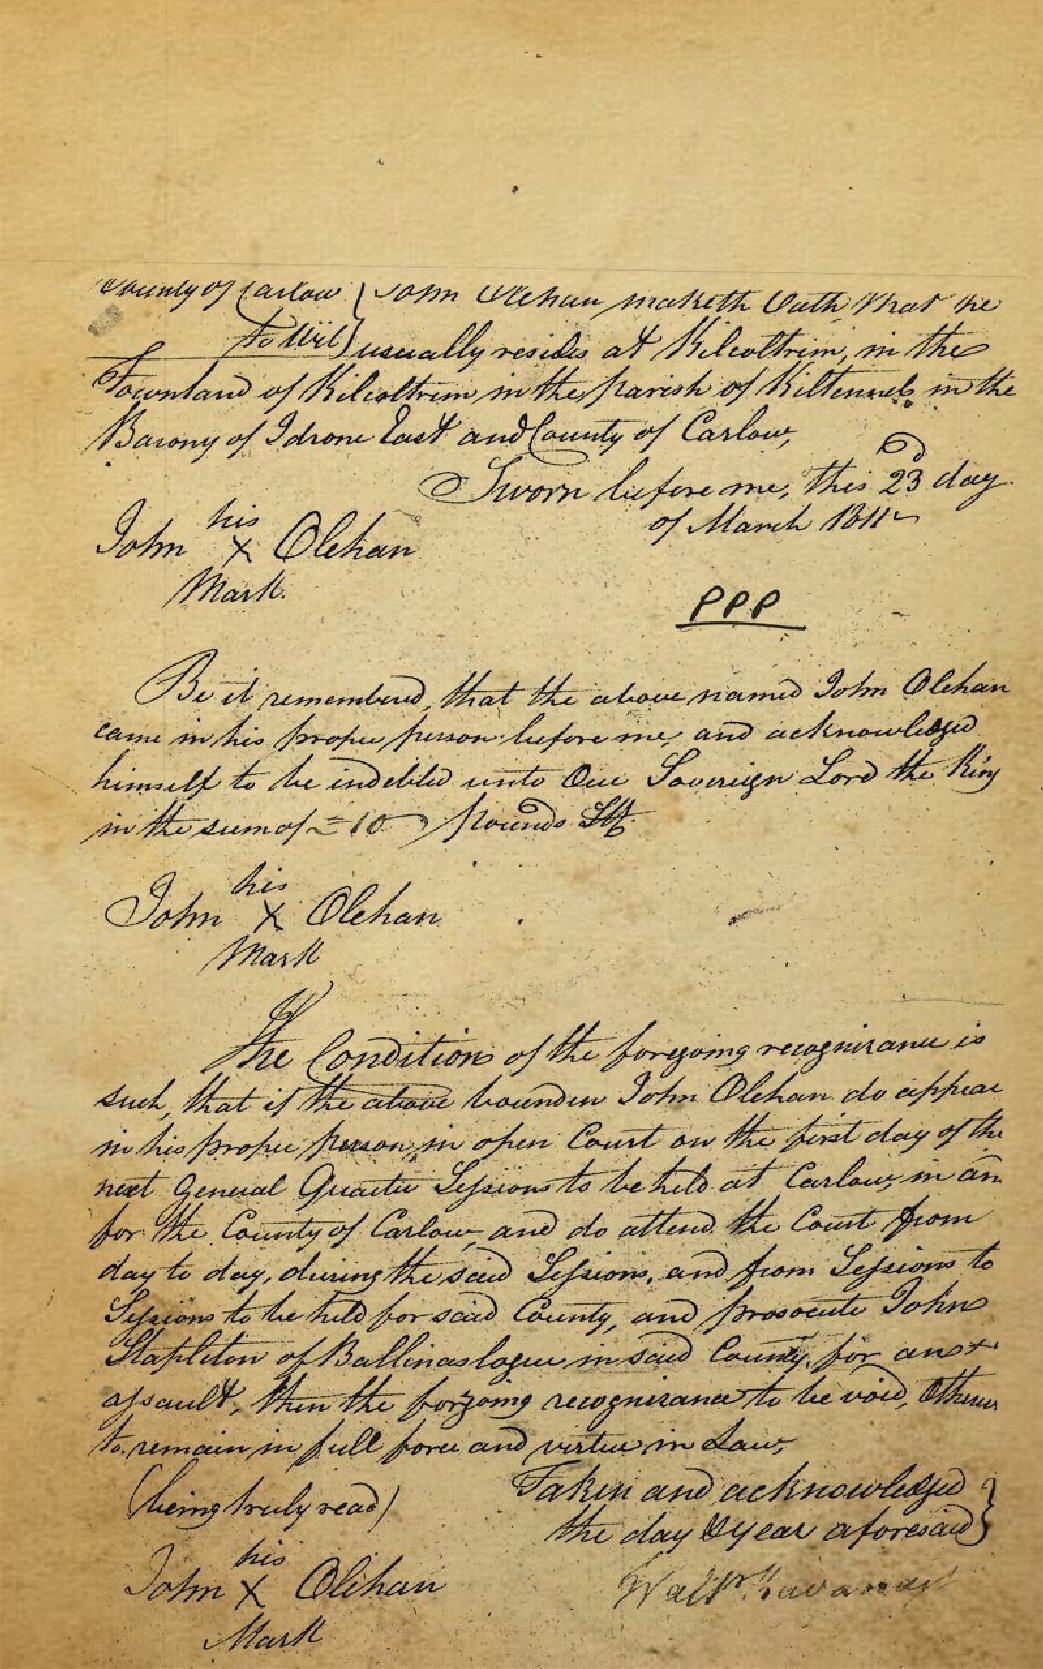 County of Carlow } John Olehan maketh Oath that he
to Wit } usually resides at Kilcoltrim, in the
Townland of Kilcoltrim in the parish of Kiltennel in the
Barony of Idrone East and County of Carlow,
Sworn before me, this 23d day
of March 1811
his
John X Olehan
Mark.
PPP
Be it remembered, that the above named John Olehan
came in his proper person before me, and acknowledged
himself to be indebted unto Our Sovereign Lord the King
in the sum of £10 pounds Stg.
his
John X Olehan
Mark
The Condition of the foregoing recognizance is
such, that if the above bounden John Olehan do appear
in his proper person, in open Court on the first day of the
next General Quarter Sessions to be held at Carlow, in an
for the County of Carlow, and do attend the Court from
day to day, during the said Sessions, and from Sessions to
Sessions to be held for said County, and prosecute John
Stapleton of Ballinaslogue in said County, for an
assault, then the forgoing recognizance to be void, Otherwise
to remain in full force and virtue in Law,
(being truly read)
Taken and acknowledged
the day & year aforesaid }
his
John X Olehan
Mark
Walt Kavanagh